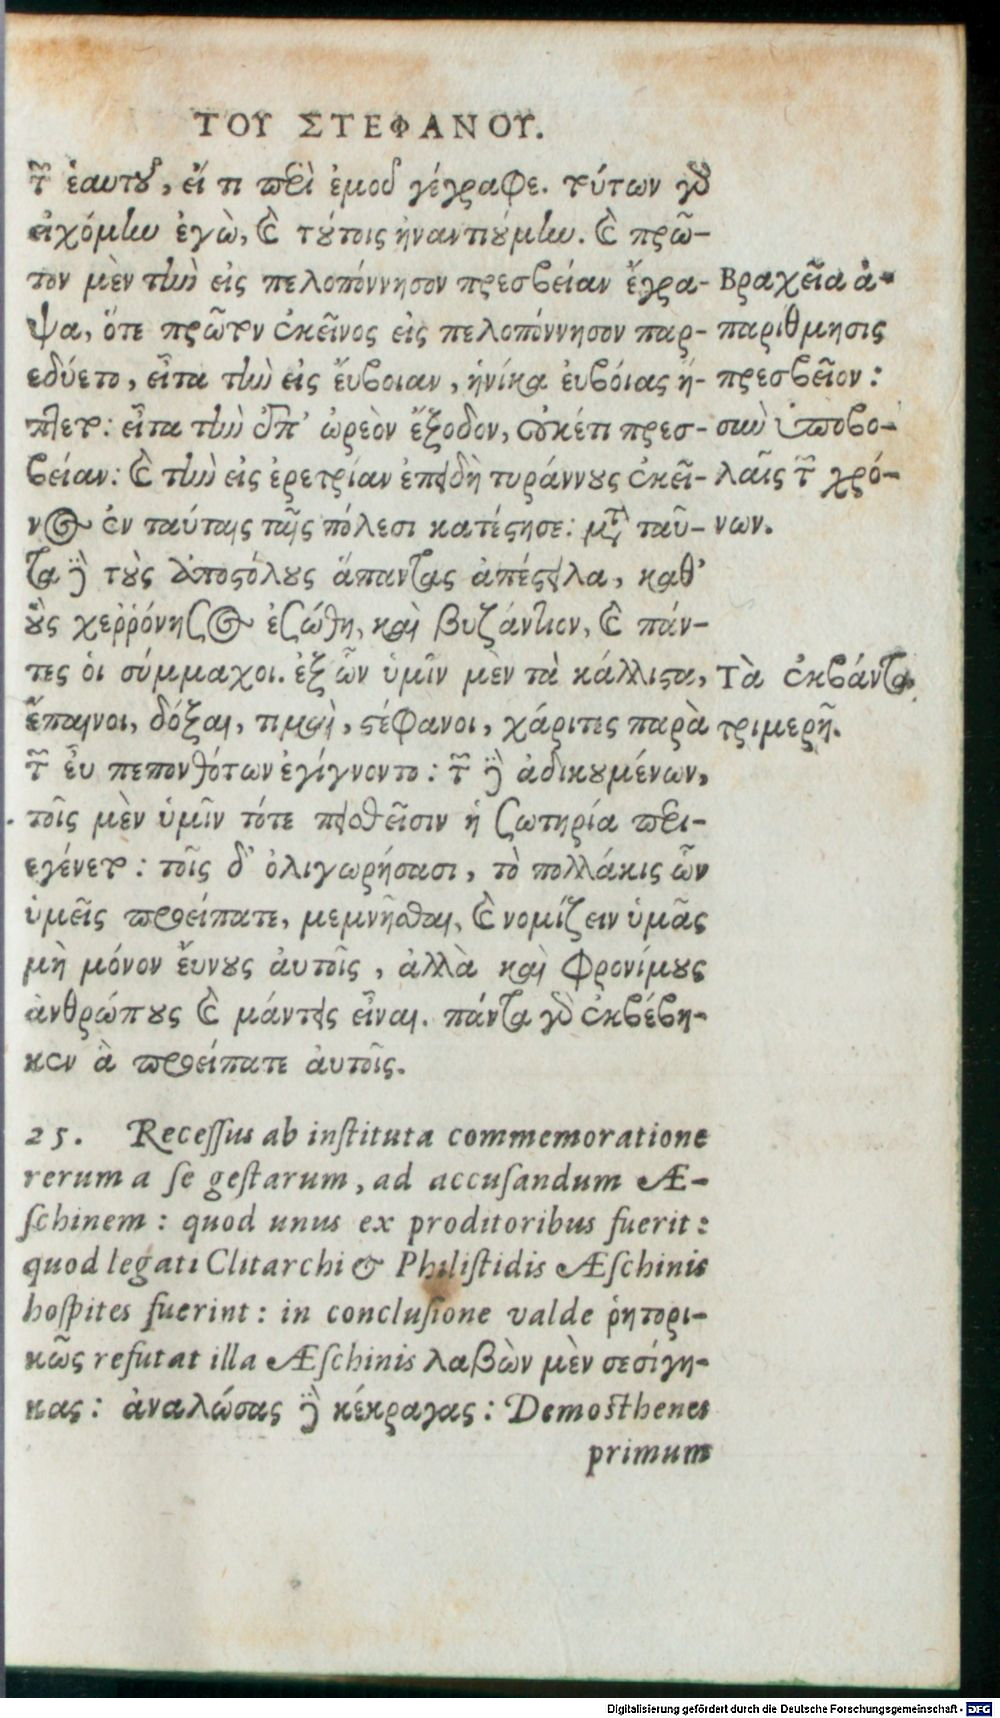 ΤΟΥ ΣΤΕΦΑΝΟΥ.
τῶν ἑαυτοῦ, εἴ τι περὶ ἐμοῦ γέγραφε. τούτων γὰρ
εἰχόμην ἐγὼ, καὶ τούτοις ἠναντιούμην. καὶ πρῶ-
τον μὲν τὴν εἰς πελοπόννησον πρεσβείαν ἔγρα-
ψα, ὅτε πρῶτον ἐκεῖνος εἰς πελοπόννησον παρ-
εδύετο, εἶτα τὴν εἰς ἔυβοιαν, ἡνίκα ἐυβόιας ἥ-
πτετο: εἶτα τὴν ἐπ' ὠρεὸν ἔξοδον, οὐκέτι πρεσ-
βείαν: καὶ τὴν εἰς ἐρετρίαν ἐπειδὴ τυράννους ἐκεῖ-
νος ἐν ταύταις ταῖς πόλεσι κατέστησε: μετὰ ταῦ-
τα δὲ τοὺς ἀποστόλους ἅπαντας ἀπέστειλα, καθ'
οὓς χεῤῥόνησος ἐσώθη, καὶ βυζάντιον, καὶ πάν-
τες ὁι σύμμαχοι. ἐξ ὧν ὑμῖν μὲν τὰ κάλλιστα,
ἔπαινοι, δόξαι, τιμαὶ, στέφανοι, χάριτες παρὰ
τῶν ἐυ πεπονθότων ἐγίγνοντο: τῶν δὲ ἀδικουμένων,
τοῖς μὲν ὑμῖν τότε πειθεῖσιν ἡ σωτηρία περι-
εγένετο: τοῖς δ' ὀλιγωρήσασι, τὸ πολλάκις ὧν
ὑμεῖς προείπατε, μεμνῆσθαι, καὶ νομίζειν ὑμᾶς
μὴ μόνον ἔυνους ἀυτοῖς, ἀλλὰ καὶ φρονίμους
ἀνθρώπους καὶ μάντεις εἶναι. πάντα γὰρ ἐκβέβη-
κεν ἃ προείπατε ἀυτοῖς.
Βραχεῖα ἀ-
παρίθμησις
πρεσβεῖον:
σὺν ὑποβο-
λαῖς τῶν χρό-
νων.
Τὰ ἐκβάντα
τριμερῆ.
25. Recessus ab instituta commemoratione
rerum a se gestarum, ad accusandum Æ-
schinem: quod unus ex proditoribus fuerit:
quod legati Clitarchi & Philistidis Æschinis
hospites fuerint: in conclusione valde ῥητορι-
κῶς refutat illa Æschinis λαβὼν μὲν σεσίγη-
κας: ἀναλώσας δὲ κέκραγας: Demosthenes
primum
Digitalisierung gefördert durch die Deutsche Forschungsgemeinschaft - DFG